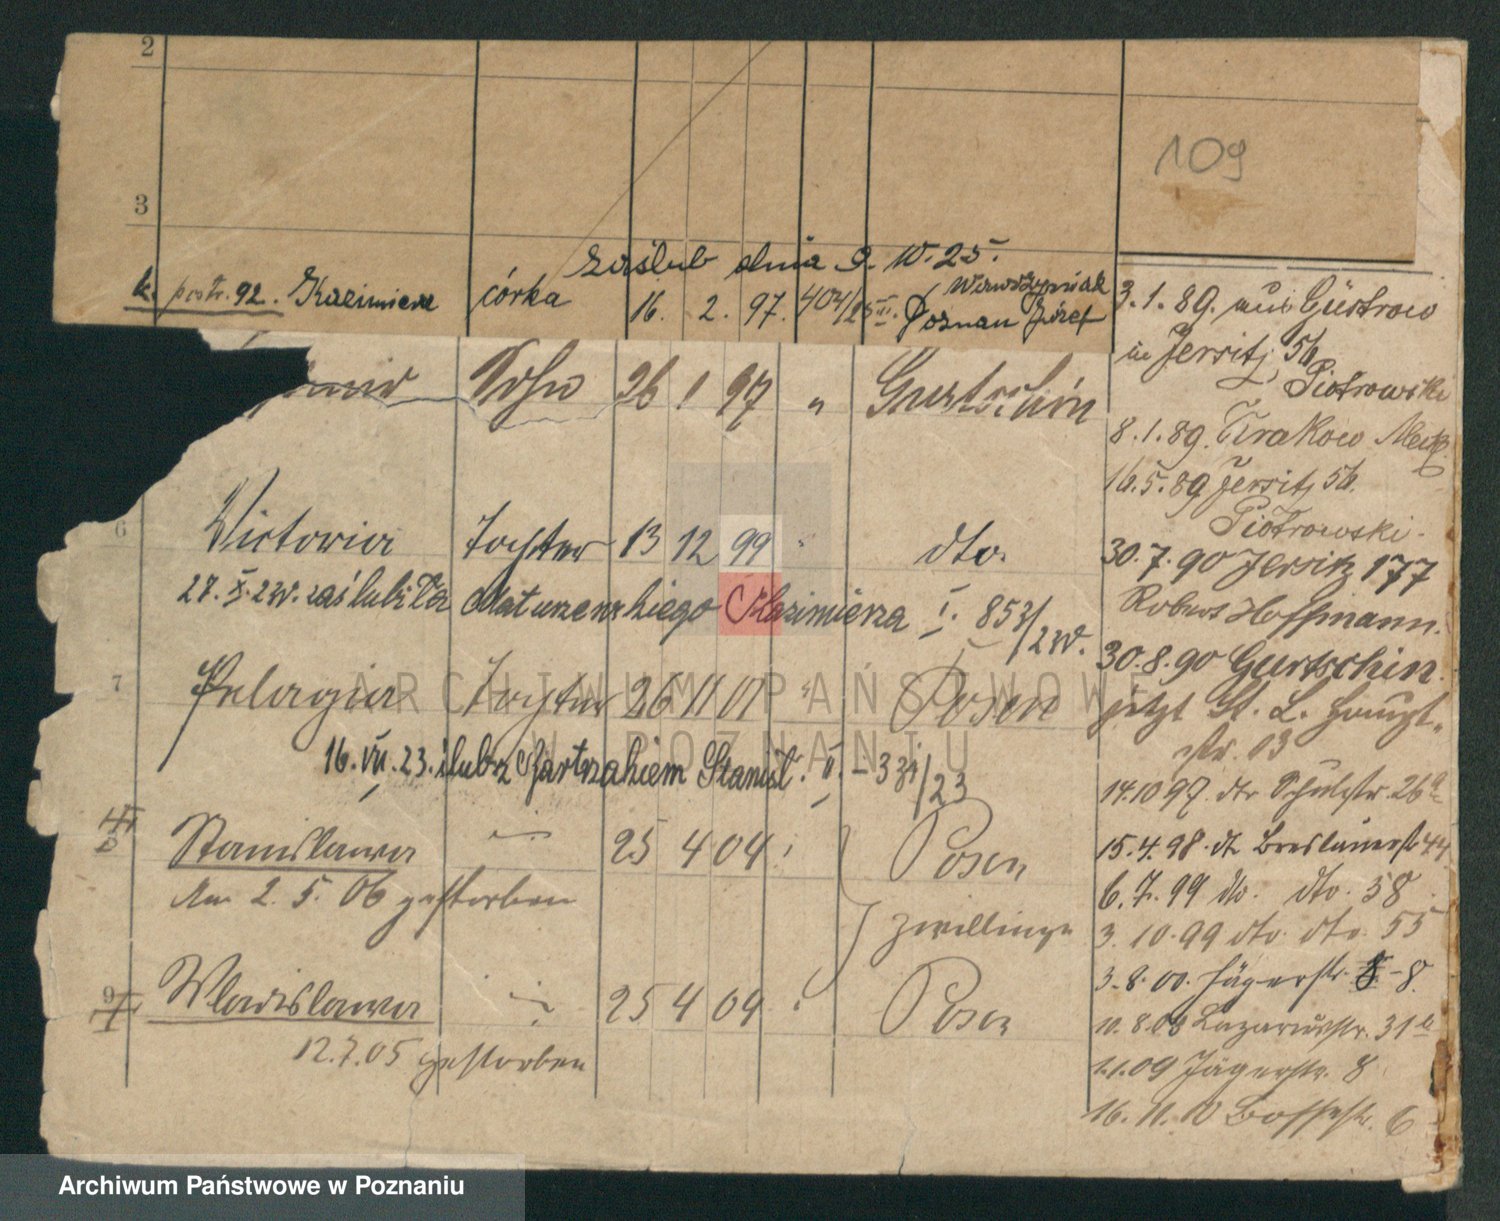 2
109
3
zaślub dnia 9. IV. 25.
k. postr. 92. Kazimiera córka 16. 2. 97. 404/25 III. Wawrzyniak
Poznan Józef
Sohn 26 1 97 " Gurtschin
6 Victoria Tochter 13 12 99 " dto.
27. X. 22r. zaślubiła Matuszewskiego Kazimierza I. 853/22r.
7 Pelagia Tochter 26 11 01 " Posen
16. VII. 23. ślub z Bartkakiem Stanisł. II. - 331/23
Stanislawa 25 4 04 Posen
Am 2. 5. 06 gestorben
Zwillinge
9 Wladislawa 25 4 04 Posen
12.7.05 gestorben
3.1.89. aus Güstrow
in Jersitz 56
Piotrowski
8.1.89. Krakow Meck.
16.5.89 Jersitz 56.
Piotrowski.
30.7.90 Jersitz 177
Robert Hoffmann.
30.8.90 Gurtschin.
jetzt St. L. Haupt-
str. 13
14.10 97. dtr Schulstr. 26a
15.4.98. dt. Breslauerstr 44
6.7.99 do. dto. 38
3.10.99 dto. dto. 55
3.8.00. Jägerstr. 8
10.8.08 Lazarusstr. 31b
1.1.09 Jägerstr. 8
16.11.10 Bossestr. 6
ARCHIWUM PAŃSTWOWE
W POZNANIU
Archiwum Państwowe w Poznaniu